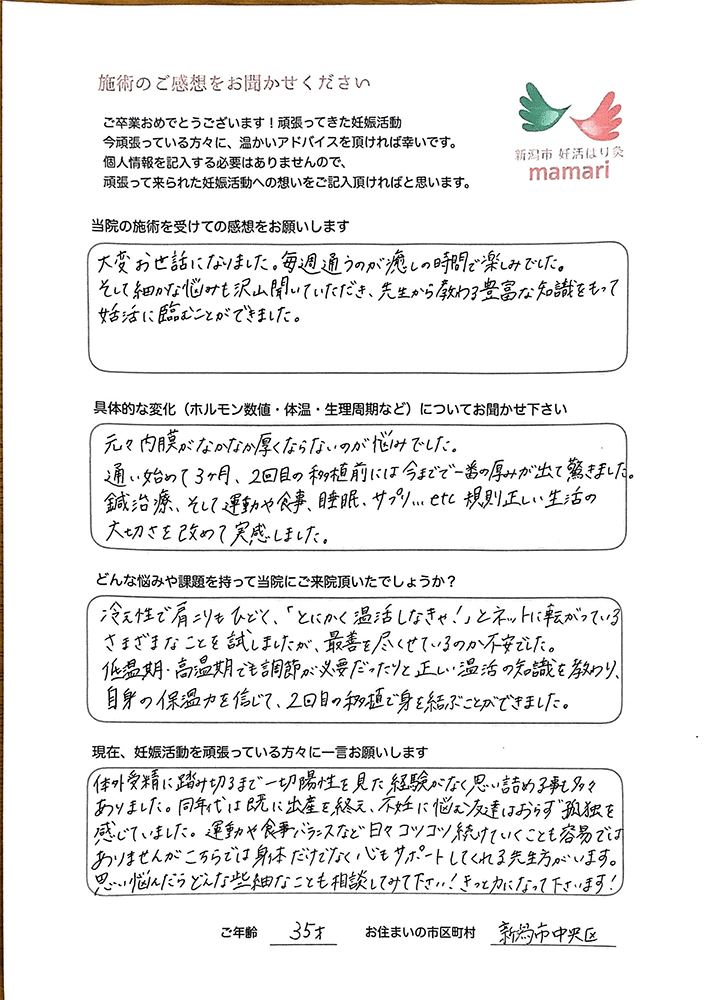 施術のご感想をお聞かせください
ご卒業おめでとうございます！頑張ってきた妊娠活動
今頑張っている方々に、温かいアドバイスを頂ければ幸いです。
個人情報を記入する必要はありませんので、
頑張って来られた妊娠活動への想いをご記入頂ければと思います。
新潟市 妊活はり灸
mamari
当院の施術を受けての感想をお願いします
大変お世話になりました。毎週通うのが癒しの時間で楽しみでした。
そして細かな悩みも沢山聞いていただき、先生から教わる豊富な知識をもって
妊活に臨むことができました。
具体的な変化（ホルモン数値・体温・生理周期など）についてお聞かせ下さい
元々内膜がなかなか厚くならないのが悩みでした。
通い始めて3ヶ月、2回目の移植前には今までで一番の厚みが出て驚きました。
鍼治療、そして運動や食事、睡眠、サプリ…etc 規則正しい生活の
大切さを改めて実感しました。
どんな悩みや課題を持って当院にご来院頂いたでしょうか？
冷え性で肩こりもひどく、「とにかく温活しなきゃ！」とネットに転がっている
さまざまなことを試しましたが、最善を尽くせているのか不安でした。
低温期・高温期でも調節が必要だったりと正しい温活の知識を教わり、
自身の保温力を信じて、2回目の移植で身を結ぶことができました。
現在、妊娠活動を頑張っている方々に一言お願いします
体外受精に踏み切るまで一切陽性を見た経験がなく思い詰める事も多々
ありました。同年代は既に出産を終え、不妊に悩む友達はおらず孤独を
感じていました。運動や食事バランスなど日々コツコツ続けていくことも容易では
ありませんがこちらでは身体だけでなく心もサポートしてくれる先生方がいます。
思い悩んだらどんな些細なことも相談してみて下さい！きっと力になって下さいます！
ご年齢 35才 お住まいの市区町村 新潟市中央区